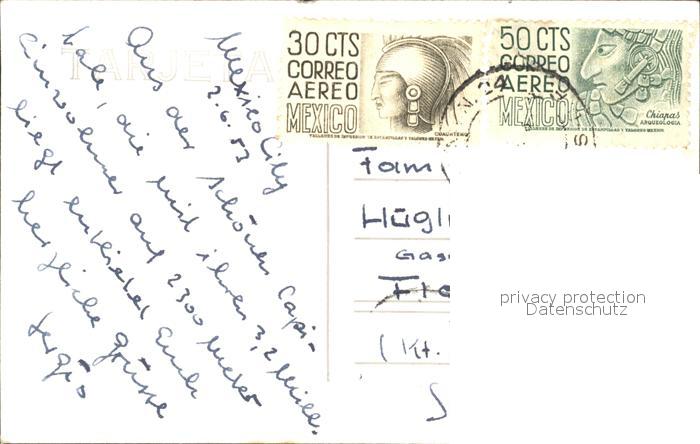 TARJETA
Mexico City
2.6.53
Aus der schönen Capi-
tale, die mit ihren 3,2 Mill.
Einwohner auf 2300 Meter
liegt entbietet Euch
herzliche Grüsse
Sergio
30 CTS
CORREO
AEREO
MEXICO
CUAUHTEMOC
TALLERES DE IMPRESION DE ESTAMPILLAS Y VALORES-MEXICO
50 CTS
CORREO
AEREO
MEXICO
Chiapas
ARQUEOLOGIA
TALLERES DE IMPRESION DE ESTAMPILLAS Y VALORES-MEXICO
Fam
Hügli
Gas
(Kt.
privacy protection
Datenschutz